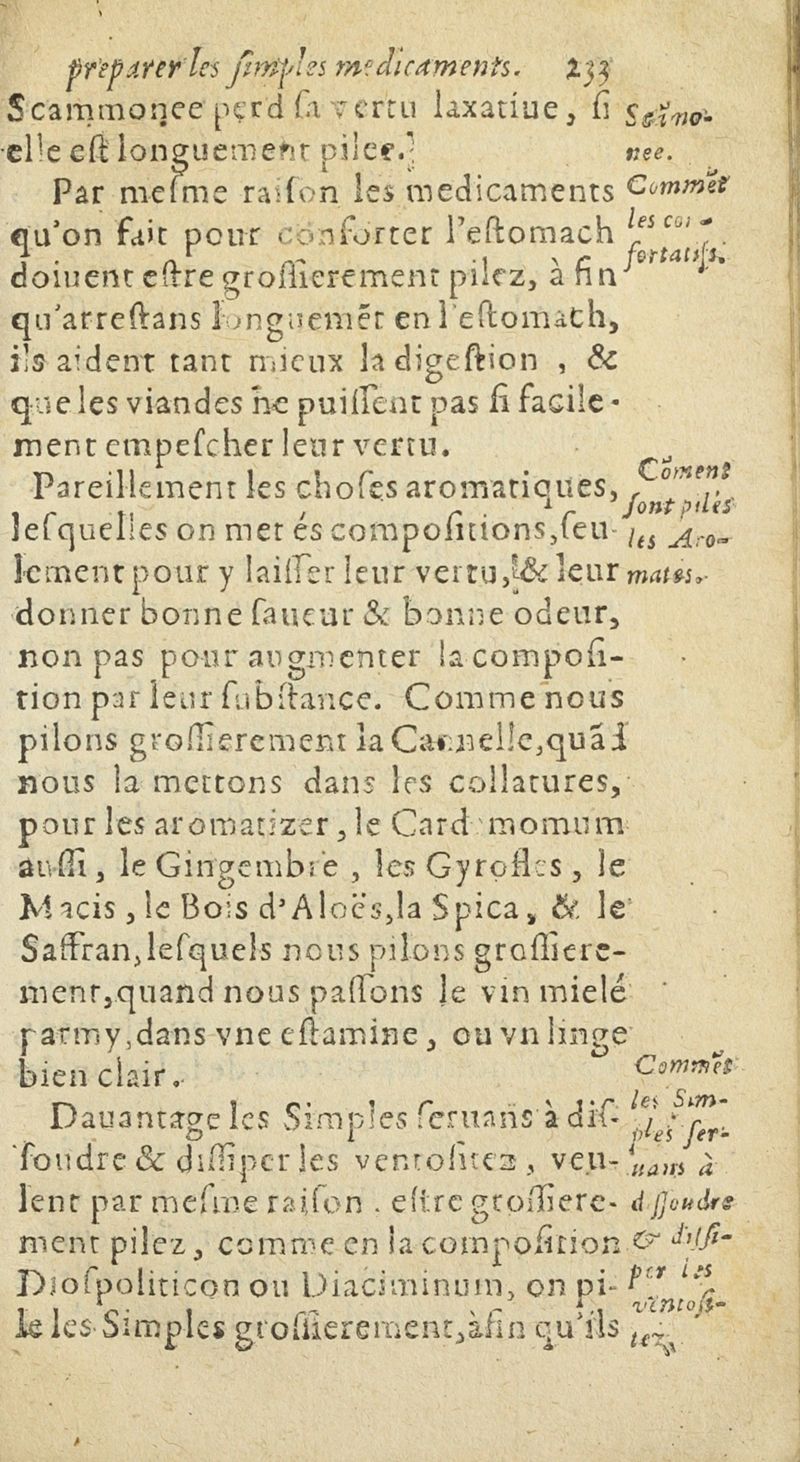 preparer les ſimples medicaments. 233
Scammonee perd ſa vertu laxatiue, ſi
elle eſt longuement pilee.
Par meſme raiſon les medicaments
qu'on fait pour conforter l'eſtomach
doiuent eſtre groſſierement pilez, à fin
qu'arreſtans longuemẽt en l'eſtomach,
ils aident tant mieux la digeſtion , &
que les viandes ne puiſſent pas ſi facile-
ment empeſcher leur vertu.
Pareillement les choſes aromatiques,
leſquelles on met és compoſitions, ſeu-
lement pour y laiſſer leur vertu, & leur
donner bonne ſaueur & bonne odeur,
non pas pour augmenter la compoſi-
tion par leur ſubſtance. Comme nous
pilons groſſierement la Cannelle, quãd
nous la mettons dans les collatures,
pour les aromatizer, le Cardamomum
auſſi, le Gingembre , les Gyrofles , le
Macis , le Bois d'Aloës, la Spica, & le
Saffran, leſquels nous pilons groſſiere-
ment, quand nous paſſons le vin mielé
parmy, dans vne eſtamine , ou vn linge
bien clair.
Dauantage les Simples ſeruans à diſ-
ſoudre & diſſiper les ventoſitez , veu-
lent par meſme raiſon . eſtre groſſiere-
ment pilez , comme en la compoſition
Dioſpoliticon ou Diaciminum, on pi-
le les Simples groſſierement, àfin qu'ils
Scãmo-
nee.
Commẽt
les cõ-
fortatifs.
Comẽnt
ſont pilés
les Aro-
mates.
Commẽt
les Sim-
ples ſer-
uans à
diſſoudre
& diſſi-
per les
ventoſi-
tez.